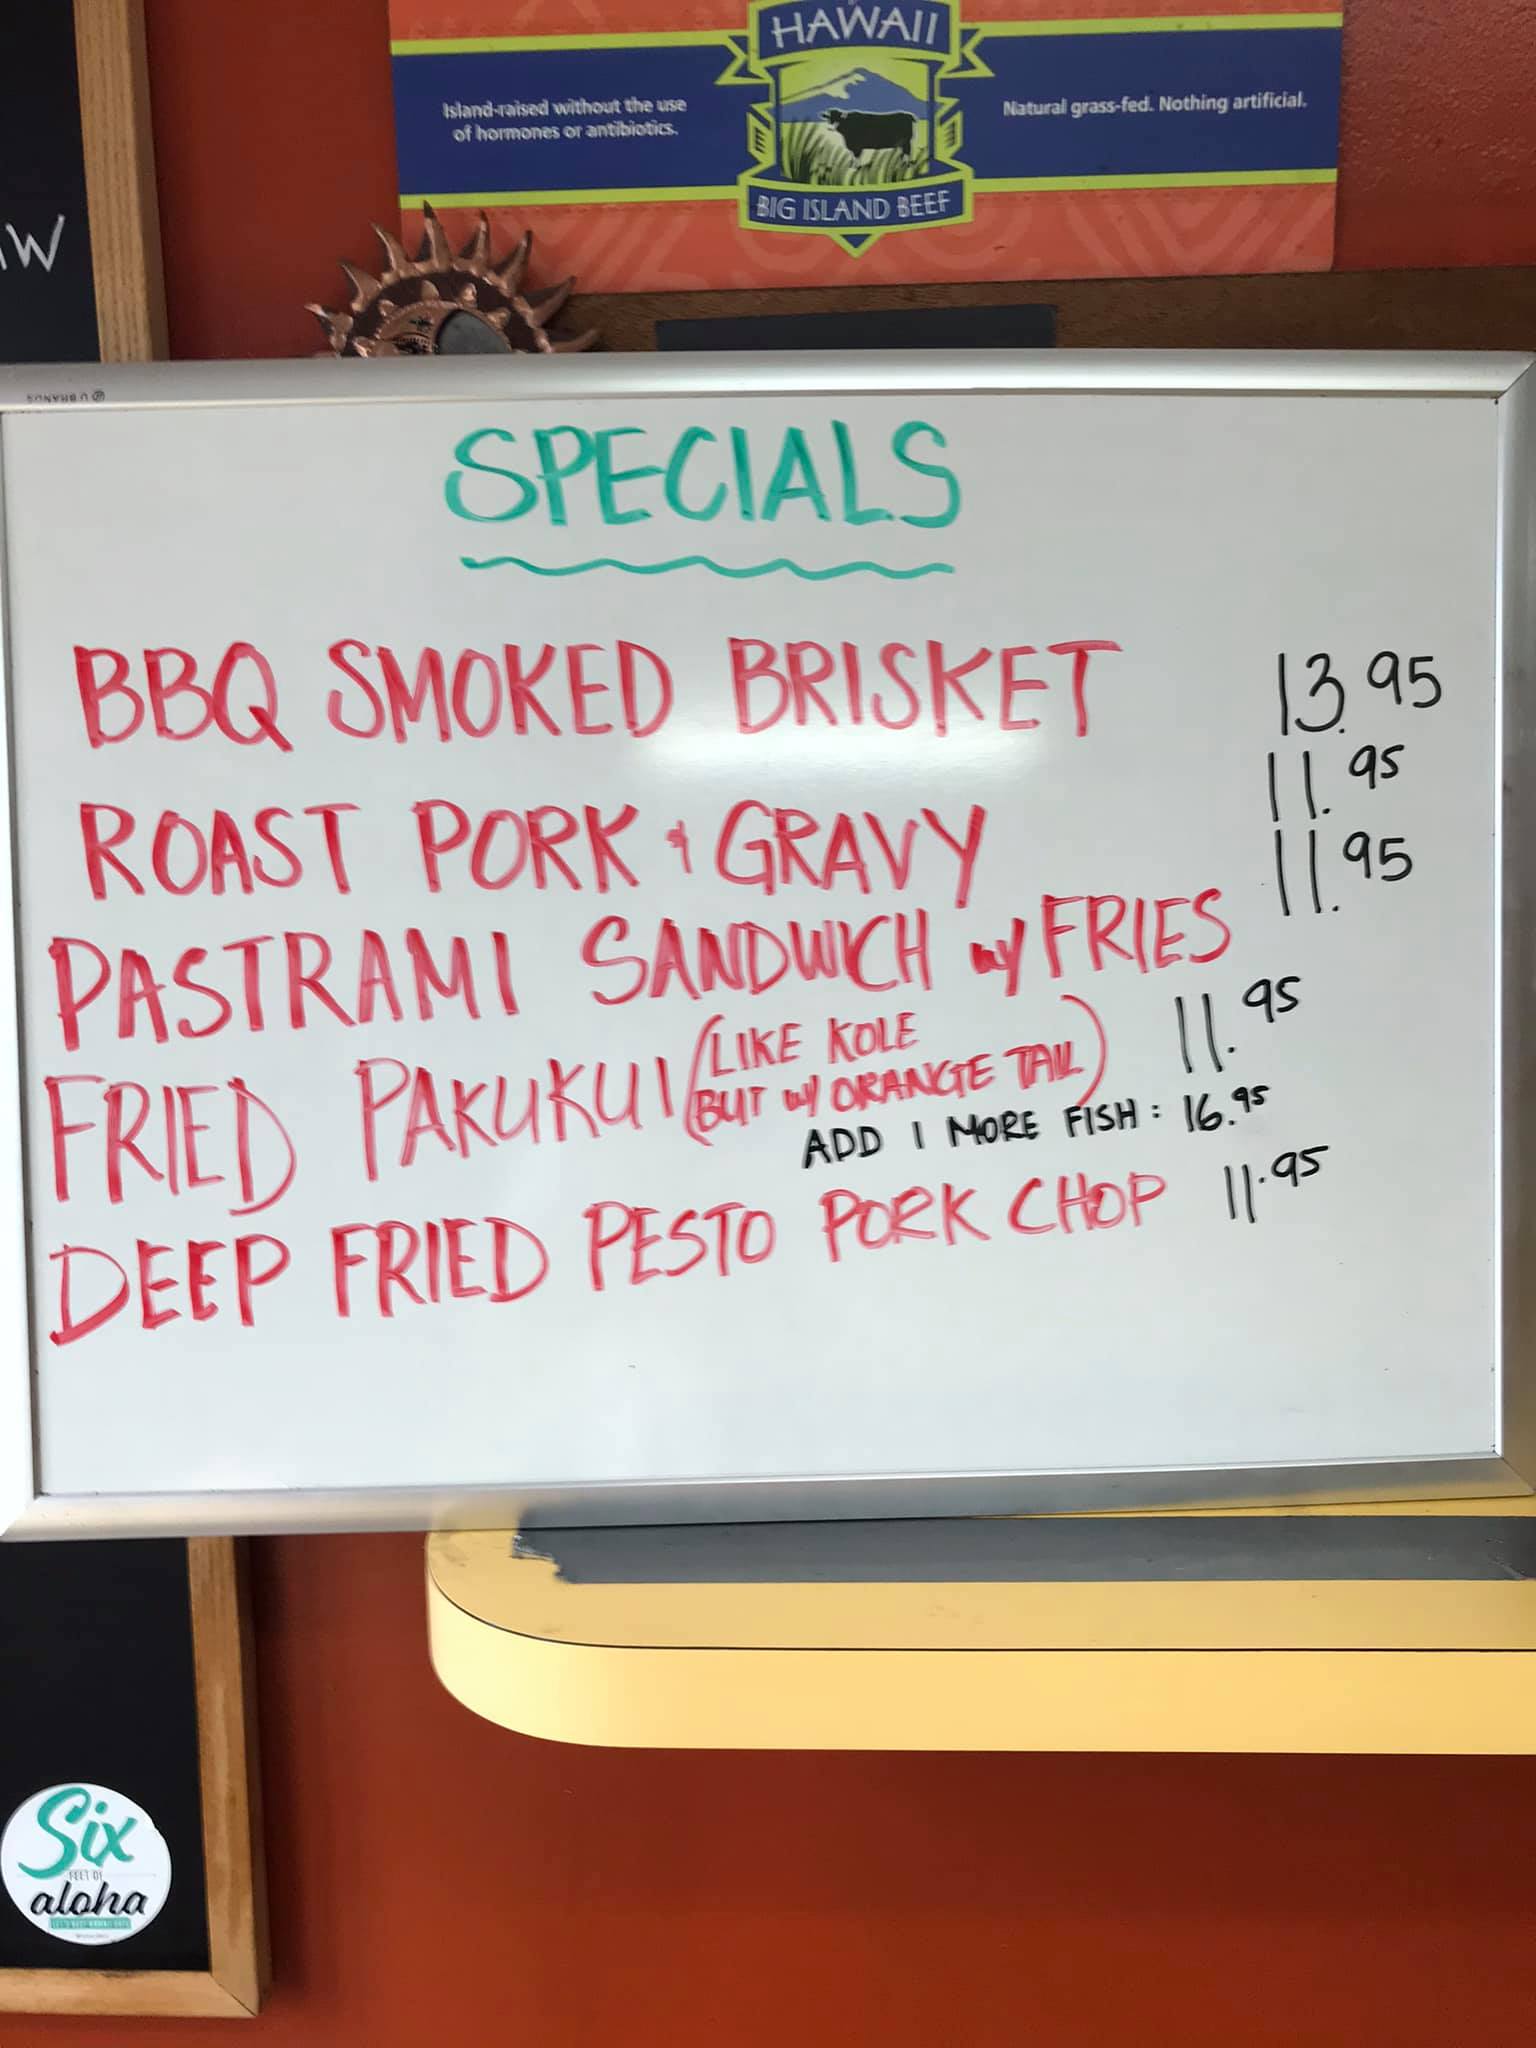 HAWAII
Island-raised without the use
of hormones or antibiotics.
Natural grass-fed. Nothing artificial.
BIG ISLAND BEEF
W
U BRANDS
SPECIALS
BBQ SMOKED BRISKET 13.95
ROAST PORK & GRAVY 11.95
PASTRAMI SANDWICH w/ FRIES 11.95
FRIED PAKUKUI (LIKE KOLE
BUT w/ ORANGE TAIL) 11.95
ADD 1 MORE FISH: 16.95
DEEP FRIED PESTO PORK CHOP 11.95
Six
FEET OF
aloha